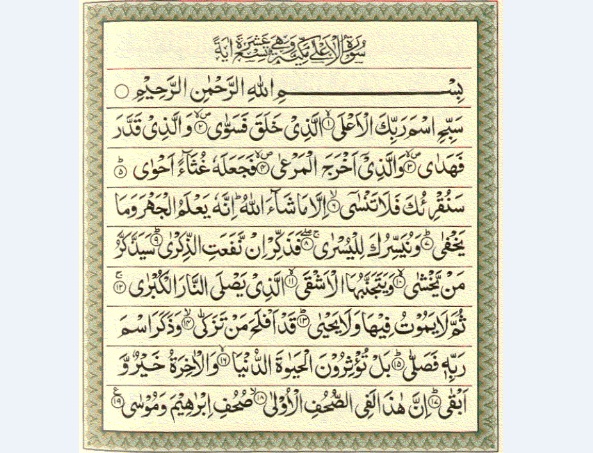 سُوْرَةُ الْاَعْلٰى مَكِّيَّةٌ وَّهِيَ تِسْعَ عَشْرَةَ اٰيَةً
بِسْمِ اللهِ الرَّحْمٰنِ الرَّحِيْمِ ○
سَبِّحِ اسْمَ رَبِّكَ الْاَعْلَى ۙ﴿۱﴾ الَّذِىْ خَلَقَ فَسَوّٰى ۪ۙ﴿۲﴾ وَالَّذِىْ قَدَّرَ
فَهَدٰى ۪ۙ﴿۳﴾ وَالَّذِىْۤ اَخْرَجَ الْمَرْعٰى ۪ۙ﴿۴﴾ فَجَعَلَهٗ غُثَآءً اَحْوٰى ؕ﴿۵﴾
سَنُقْرِئُكَ فَلَا تَنْسٰٓى ۙ﴿۶﴾ اِلَّا مَا شَآءَ اللهُ ؕ اِنَّهٗ يَعْلَمُ الْجَهْرَ وَمَا
يَخْفٰى ؕ﴿۷﴾ وَنُيَسِّرُكَ لِلْيُسْرٰى ۚۖ﴿۸﴾ فَذَكِّرْ اِنْ نَّفَعَتِ الذِّكْرٰى ؕ﴿۹﴾ سَيَذَّكَّرُ
مَنْ يَّخْشٰى ۙ﴿۱۰﴾ وَيَتَجَنَّبُهَا الْاَشْقَى ۙ﴿۱۱﴾ الَّذِىْ يَصْلَى النَّارَ الْكُبْرٰى ۚ﴿۱۲﴾
ثُمَّ لَا يَمُوْتُ فِيْهَا وَلَا يَحْيٰى ؕ﴿۱۳﴾ قَدْ اَفْلَحَ مَنْ تَزَكّٰى ۙ﴿۱۴﴾ وَذَكَرَ اسْمَ
رَبِّهٖ فَصَلّٰى ؕ﴿۱۵﴾ بَلْ تُؤْثِرُوْنَ الْحَيٰوةَ الدُّنْيَا ۖ﴿۱۶﴾ وَالْاٰخِرَةُ خَيْرٌ وَّ
اَبْقٰى ؕ﴿۱۷﴾ اِنَّ هٰذَا لَفِى الصُّحُفِ الْاُوْلٰى ۙ﴿۱۸﴾ صُحُفِ اِبْرٰهِيْمَ وَمُوْسٰى ﴿۱۹﴾